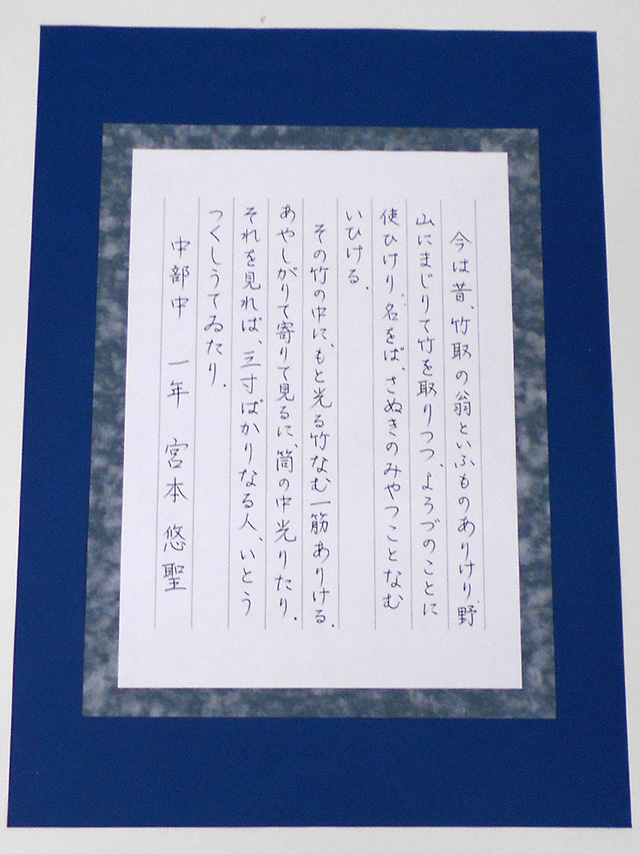 今は昔、竹取の翁といふものありけり。野
山にまじりて竹を取りつつ、よろづのことに
使ひけり。名をば、さぬきのみやつことなむ
いひける。
その竹の中に、もと光る竹なむ一筋ありける。
あやしがりて寄りて見るに、筒の中光りたり。
それを見れば、三寸ばかりなる人、いとう
つくしうてゐたり。
中部中 一年 宮本悠聖